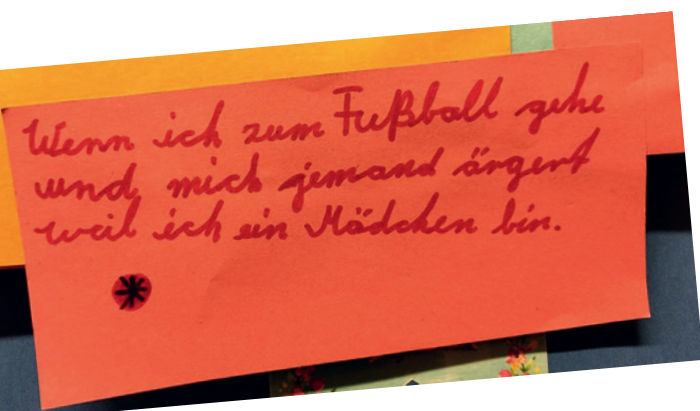 Wenn ich zum Fußball gehe
und mich jemand ärgert
weil ich ein Mädchen bin.